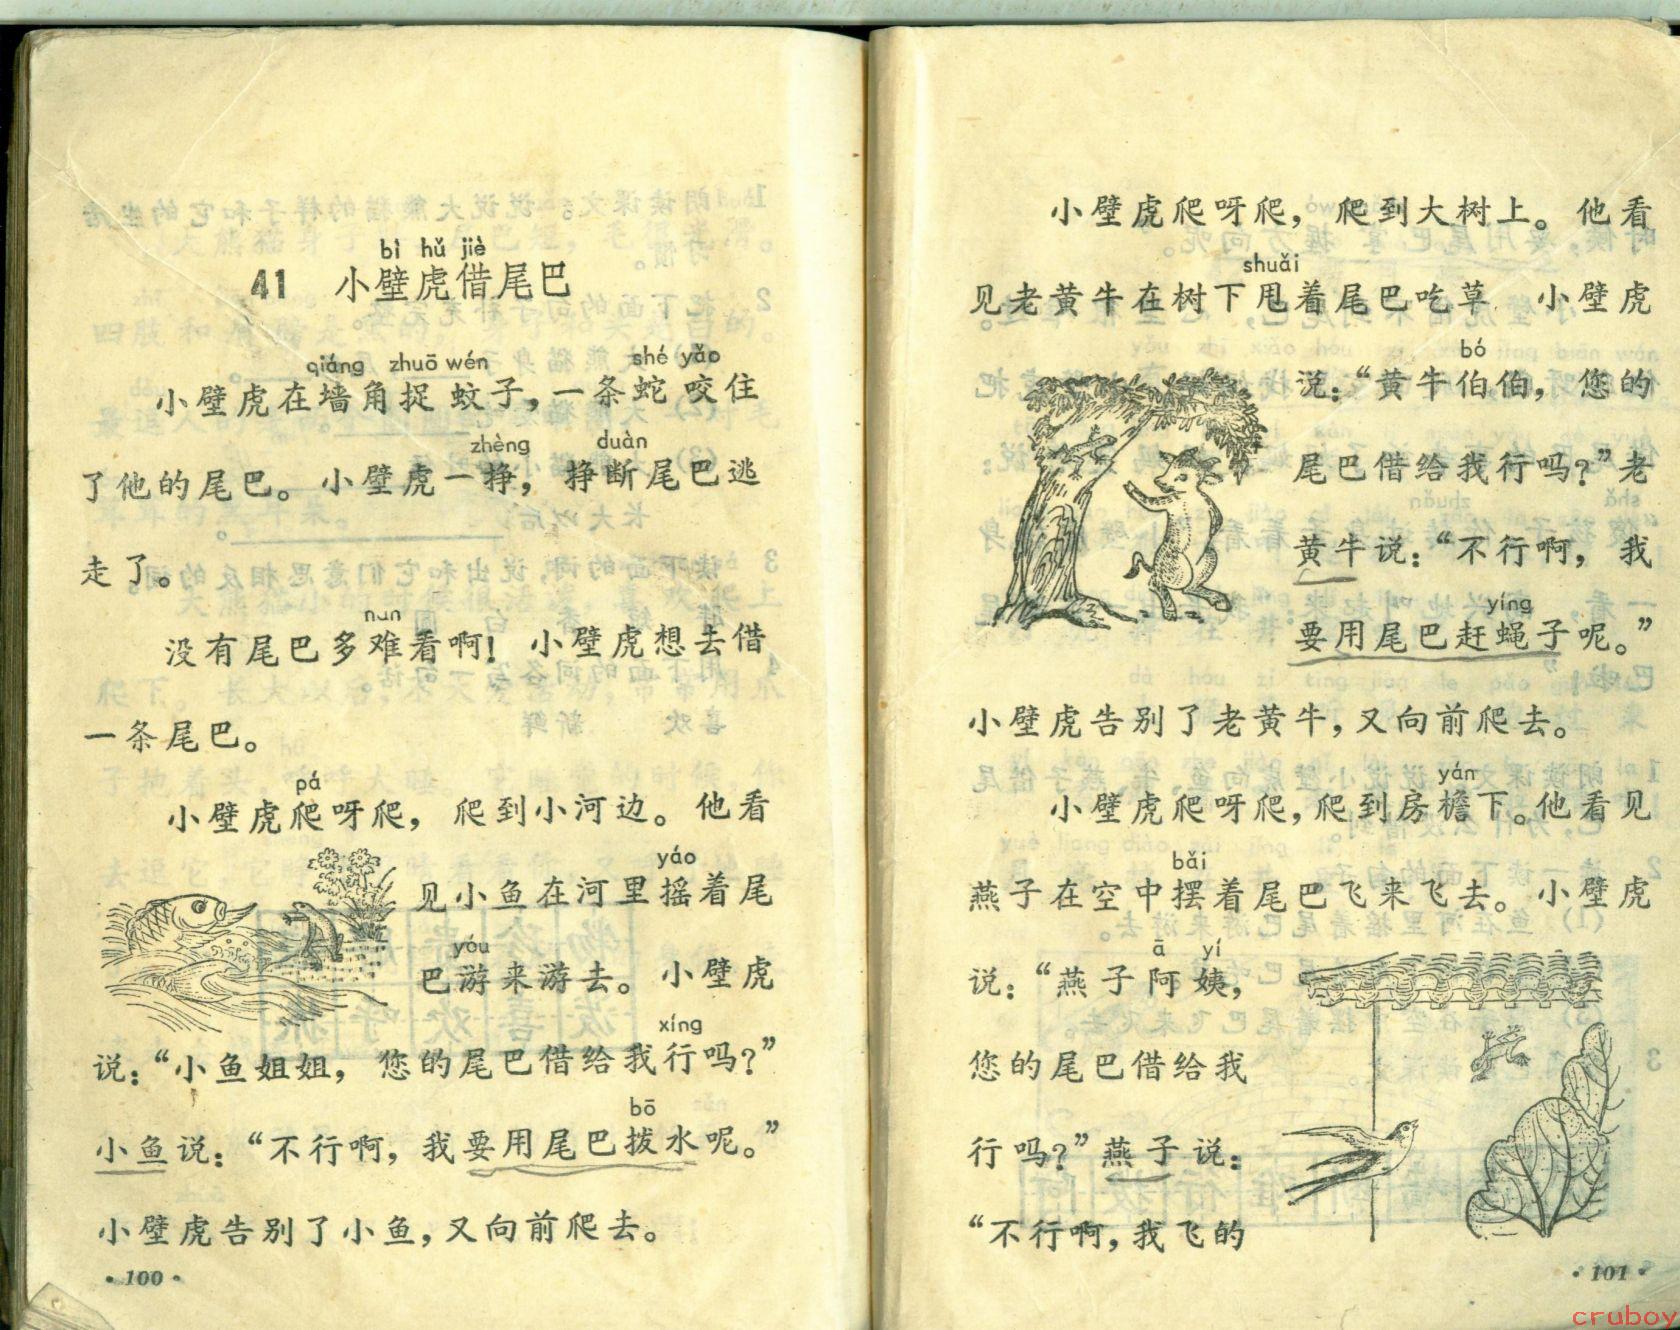 bì hǔ jiè
41 小壁虎借尾巴
qiáng zhuō wén shé yǎo
小壁虎在墙角捉蚊子，一条蛇咬住
zhèng duàn
了他的尾巴。小壁虎一挣，挣断尾巴逃
走了。
nán
没有尾巴多难看啊！小壁虎想去借
一条尾巴。
pá
小壁虎爬呀爬，爬到小河边。他看
yáo
见小鱼在河里摇着尾
yóu
巴游来游去。小壁虎
xíng
说：“小鱼姐姐，您的尾巴借给我行吗？”
bō
小鱼说：“不行啊，我要用尾巴拨水呢。”
小壁虎告别了小鱼，又向前爬去。
·100·
小壁虎爬呀爬，爬到大树上。他看
shuǎi
见老黄牛在树下甩着尾巴吃草 小壁虎
bó
说：“黄牛伯伯，您的
尾巴借给我行吗？”老
黄牛说：“不行啊，我
yíng
要用尾巴赶蝇子呢。”
小壁虎告别了老黄牛，又向前爬去。
yán
小壁虎爬呀爬，爬到房檐下。他看见
bǎi
燕子在空中摆着尾巴飞来飞去。小壁虎
ā yí
说：“燕子阿姨，
您的尾巴借给我
行吗？”燕子说：
“不行啊，我飞的
·101·
cruboy